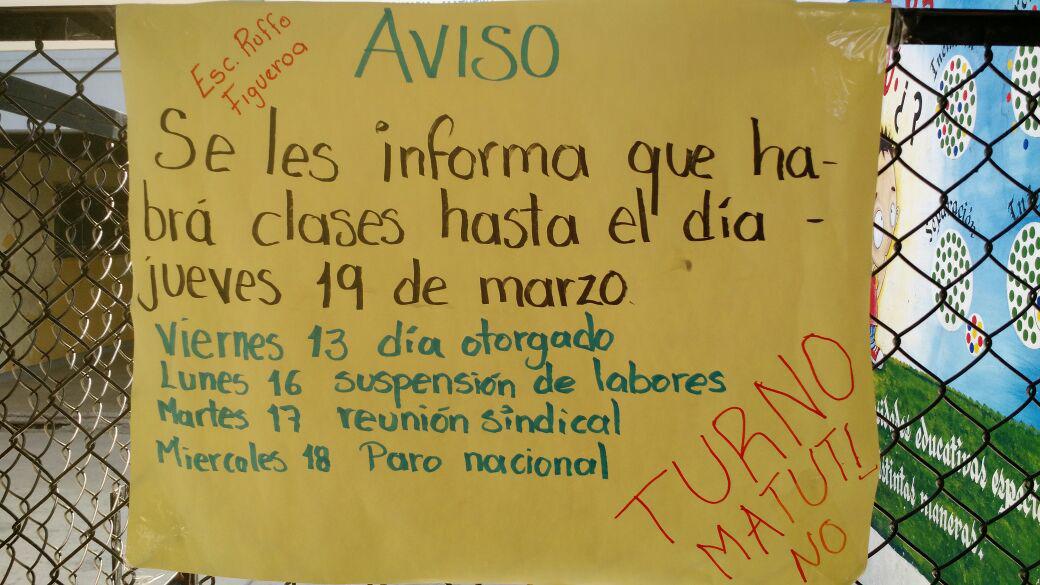 Esc. Ruffo
Figueroa
AVISO
Se les informa que ha-
brá clases hasta el día -
jueves 19 de marzo.
Viernes 13 día otorgado
Lunes 16 suspensión de labores
Martes 17 reunión sindical
Miercoles 18 Paro nacional
TURNO
MATUTI
NO
¿?
educativas especi
distintas maneras.